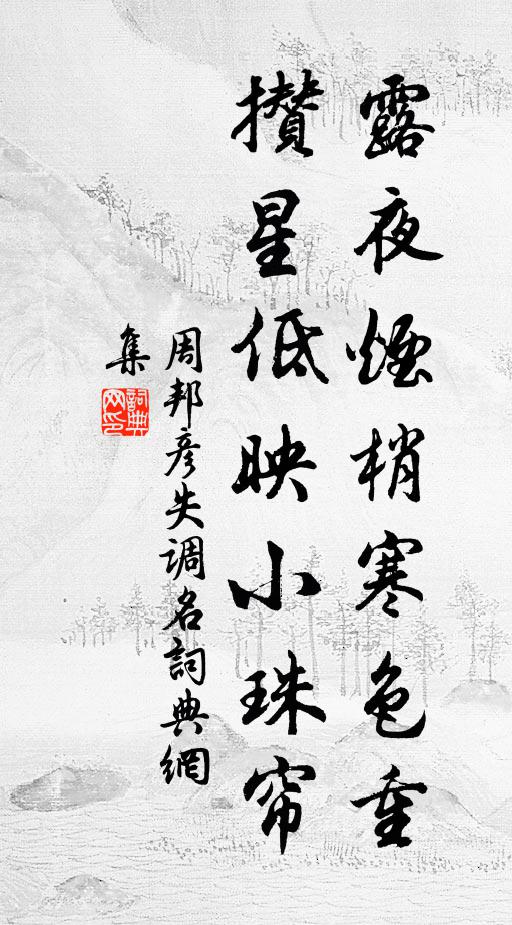 露夜煙梢寒色重
攅星低映小珠帘
周邦彦失调名詞典網
集
詞典網印